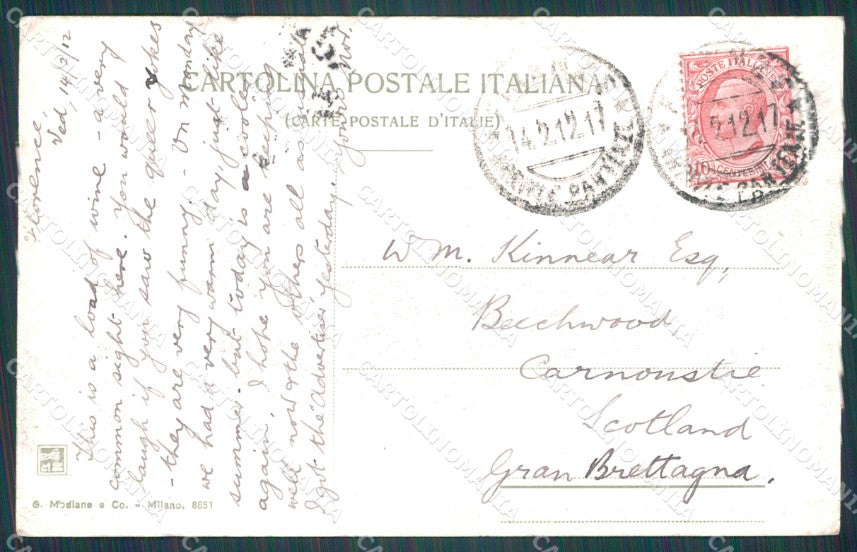 CARTOLINA POSTALE ITALIANA
(CARTE POSTALE D'ITALIE)
Florence,
Wed, 14/2/12
This is a load of wine - a very
common sight here. You would
laugh if you saw the queer yokes
- they are very funny. On Monday
we had a very warm day just like
summer - but today is cooler
again. I hope you are keeping
well now & the others all as
I got the Advertiser yesterday. Yours
W. M. Kinnear Esq,
Beechwood
Carnoustie
Scotland
Gran Brettagna.
POSTE ITALIANE
14.2.12.17
14.2.12.17
G. Modiano e Co. - Milano. 8851
CARTOLINOMANIA